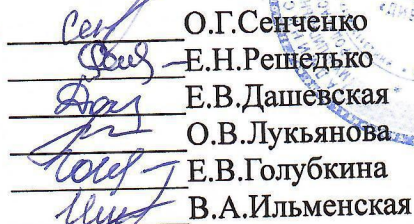 О.Г.Сенченко
Е.Н.Решедько
Е.В.Дашевская
О.В.Лукьянова
Е.В.Голубкина
В.А.Ильменская